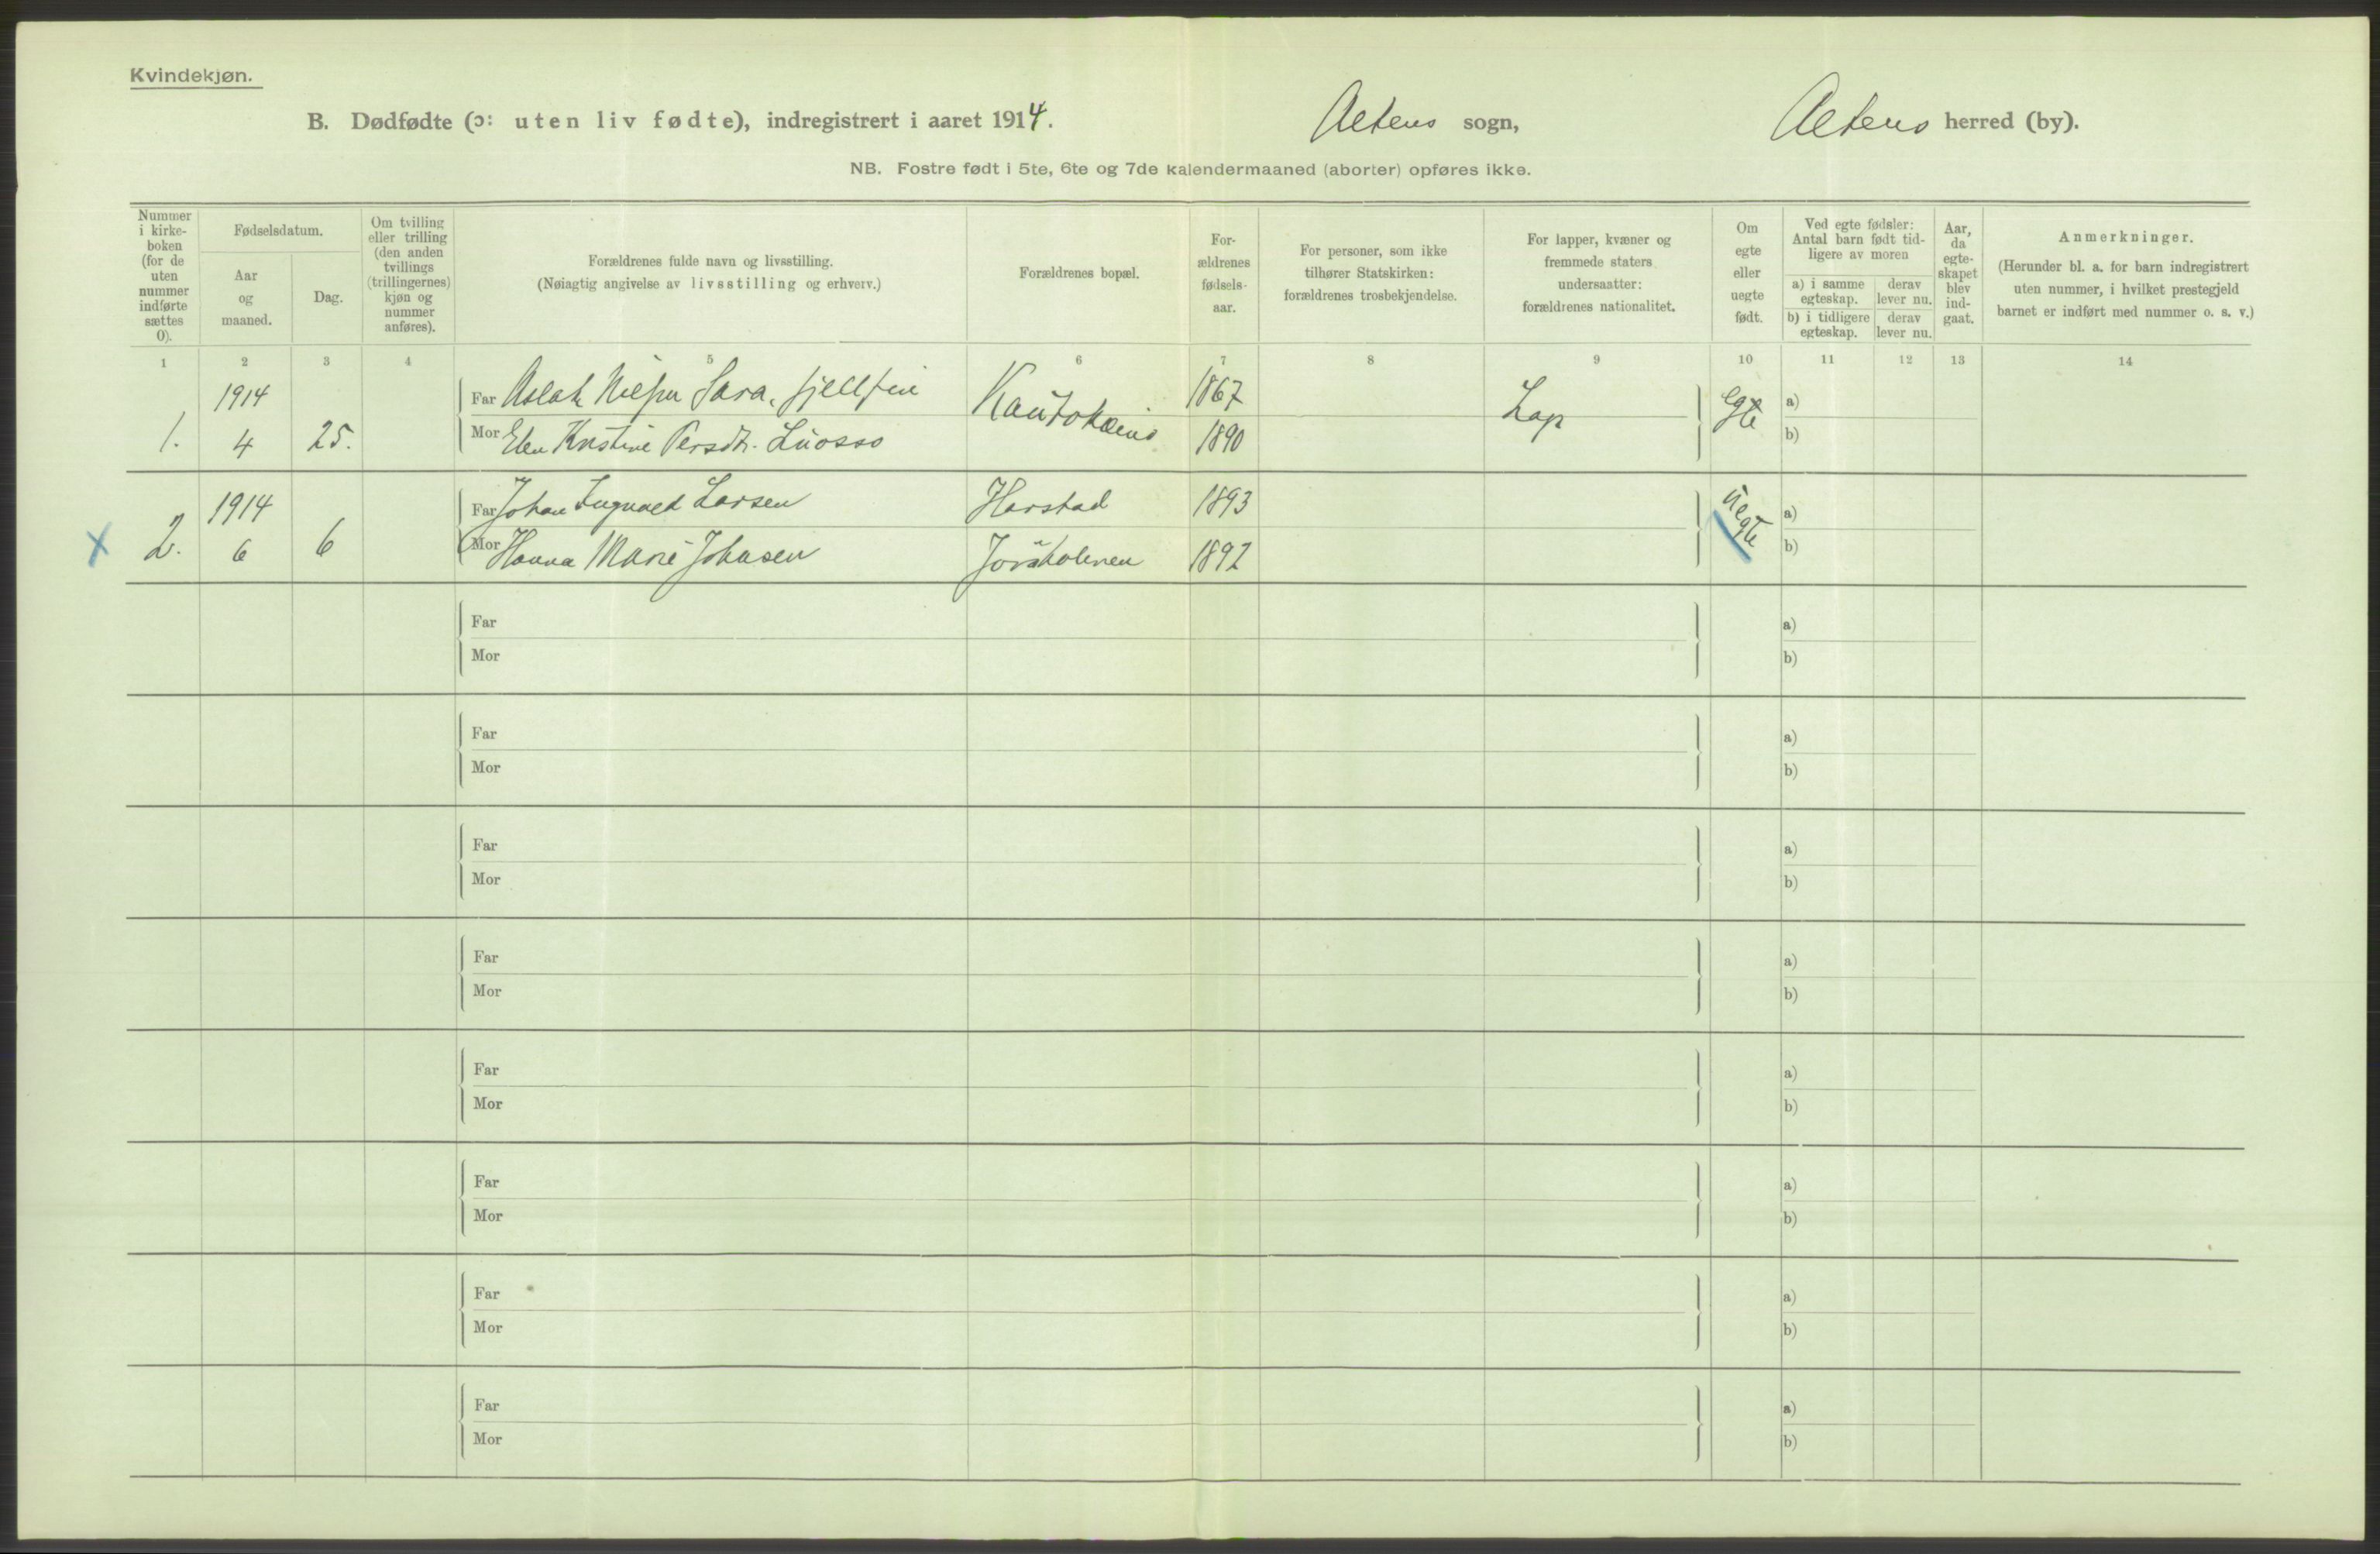 Kvindekjøn.
B. Dødfødte (ɔ: uten liv fødte), indregistrert i aaret 1914. Altens sogn, Altens herred (by).
NB. Fostre født i 5te, 6te og 7de kalendermaaned (aborter) opføres ikke.
Nummer i kirke-boken (for de uten nummer indførte sættes 0).
Fødselsdatum.
Aar og maaned.
Dag.
Om tvilling eller trilling (den anden tvillings (trillingernes) kjøn og nummer anføres).
Forældrenes fulde navn og livsstilling.
(Nøiagtig angivelse av livsstilling og erhverv.)
Forældrenes bopæl.
For-ældrenes fødsels-aar.
For personer, som ikke tilhører Statskirken: forældrenes trosbekjendelse.
For lapper, kvæner og fremmede staters undersaatter: forældrenes nationalitet.
Om egte eller uegte født.
Ved egte fødsler: Antal barn født tid-ligere av moren
a) i samme egteskap.
derav lever nu.
b) i tidligere egteskap.
derav lever nu.
Aar, da egte-skapet blev ind-gaat.
Anmerkninger.
(Herunder bl. a. for barn indregistrert uten nummer, i hvilket prestegjeld barnet er indført med nummer o. s. v.)
1 2 3 4 5 6 7 8 9 10 11 12 13 14
1. 1914 4 25. Far Aslak Nilsen Sara, fjellfin Kautokeino 1867 Lap egte a)
Mor Elen Kristine Persdtr. Luosso 1890 b)
X 2. 1914 6 6 Far Johan Ingvald Larsen Harstad 1893 uegte a)
Mor Hanna Marie Johnsen 1892 b)
Far a)
Mor b)
Far a)
Mor b)
Far a)
Mor b)
Far a)
Mor b)
Far a)
Mor b)
Far a)
Mor b)
Far a)
Mor b)
Far a)
Mor b)